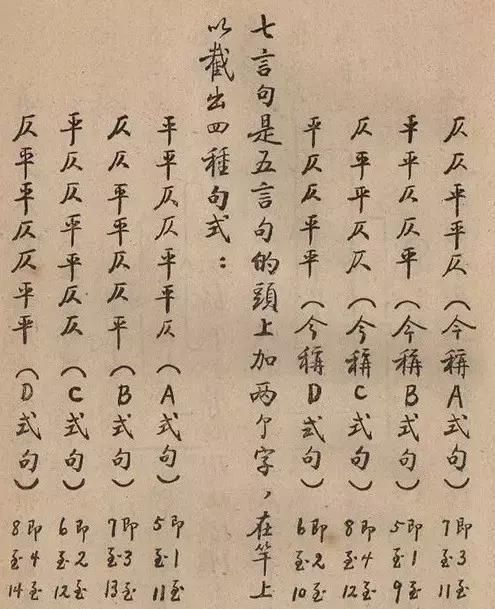 仄仄平平仄（今稱A式句）即3至7至11
平平仄仄平（今稱B式句）即1至5至9
仄平平仄仄（今稱C式句）即4至8至12
平仄仄平平（今稱D式句）即2至6至10
七言句是五言句的頭上加两个字，在竿上
以截出四種句式：
平平仄仄平平仄（A式句）即1至5至11
仄仄平平仄仄平（B式句）即3至7至13
平仄仄平平仄仄（C式句）即2至6至12
仄平平仄仄平平（D式句）即4至8至14